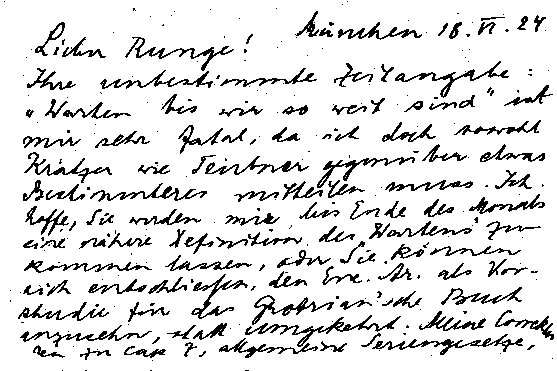 München 18. VI. 24
Lieber Runge!
Ihre unbestimmte Zeitangabe:
„Warten bis wir so weit sind" ist
mir sehr fatal, da ich doch sowohl
Krätzer wie Teubner gegenüber etwas
Bestimmteres mitteilen muss. Ich
hoffe, Sie werden mir bis Ende des Monats
eine nähere Definition des „Wartens" zu-
kommen lassen, oder Sie können
sich entschliessen, den Enc. Ar. als Vor-
studie für das Grotrian'sche Buch
anzusehn, statt umgekehrt. Meine
ren zu Cap 7, allgemeine Seriengesetze,